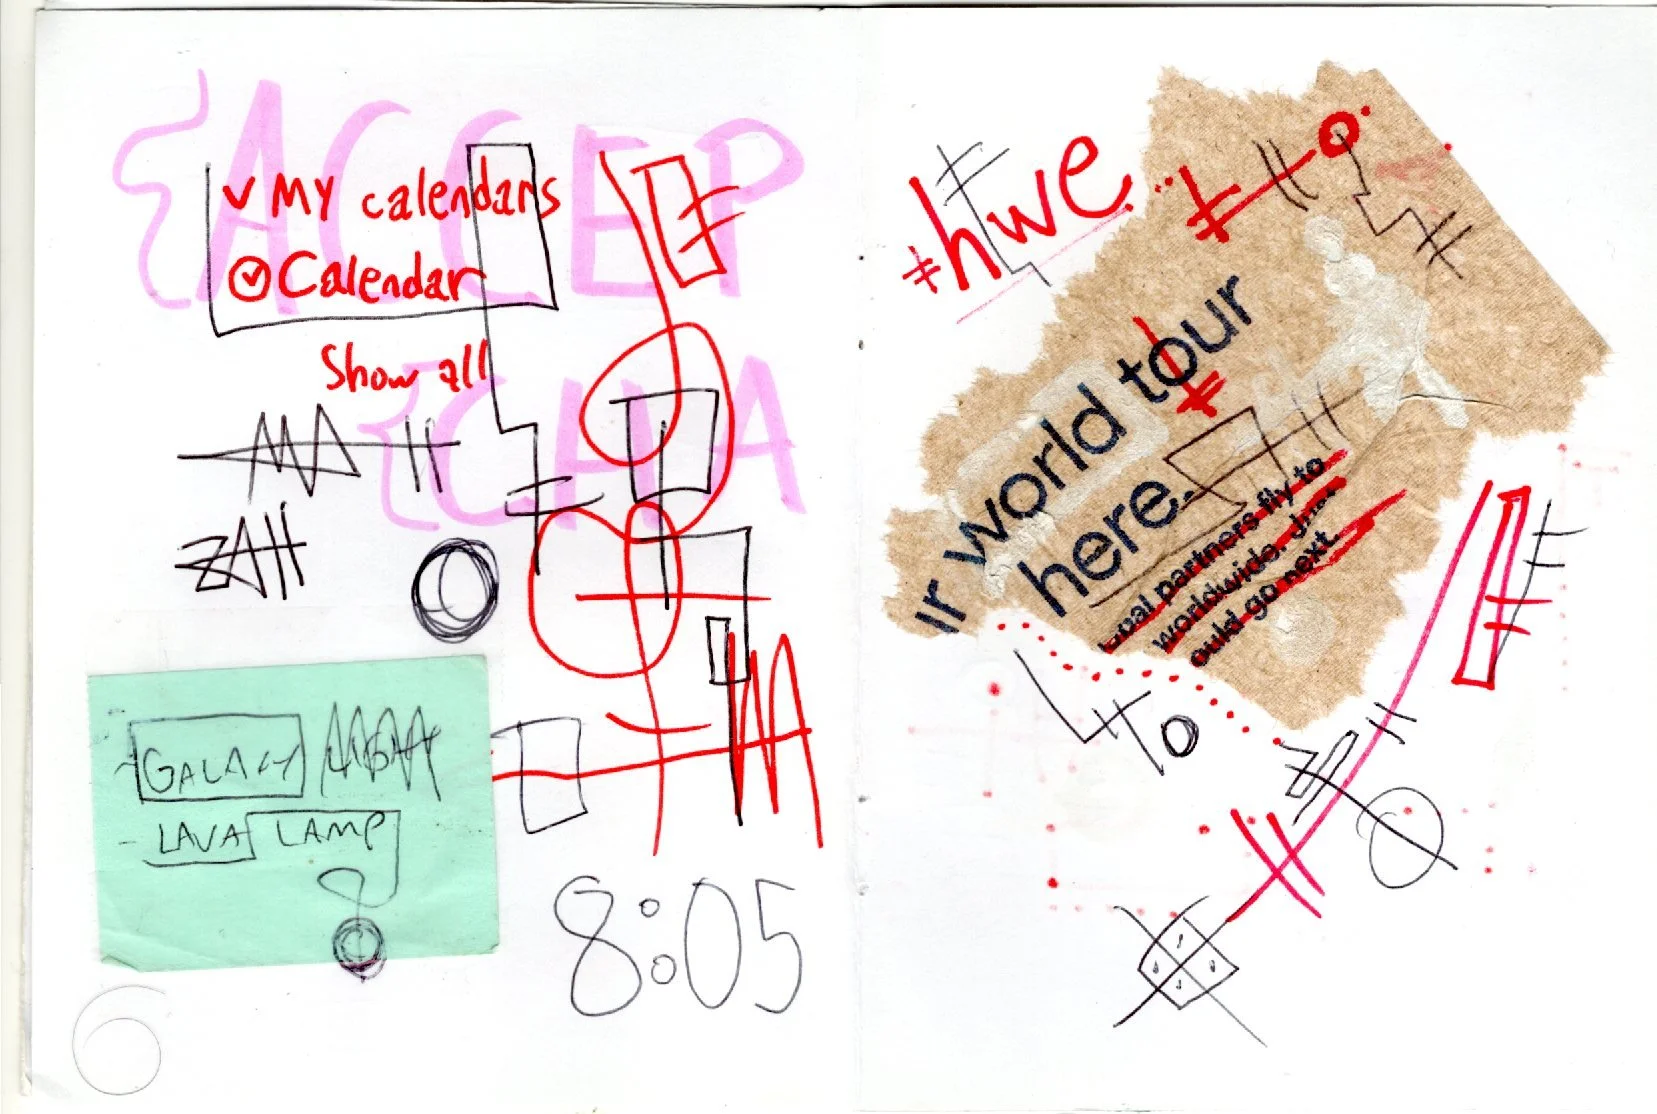 {ACCEP
✓ My calendars
Calendar
Show all
{CHA
GALAXY
LAVA LAMP
8:05
6
hwe
ur world tour
here.
partners fly to
worldwide.
ould go next.